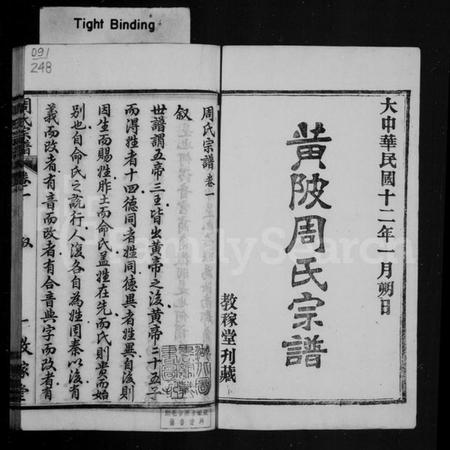 Tight Binding
091
248
大中華民國十二年一月朔日
黃陂周氏宗譜
教稼堂刊藏
周氏宗譜卷一
叙
世譜謂五帝三王皆出黃帝之後黃帝二十五子
而得姓者十四德同者姓同德異者姓異自後則
因生而賜姓胙土而命氏蓋姓在先而氏則其後而始
別也自命氏之說行人復各自為姓同秦以後有
義而改者有音而改者有合音與字而改者有
周氏宗譜 卷一 叙 一 教稼堂
FamilySearch